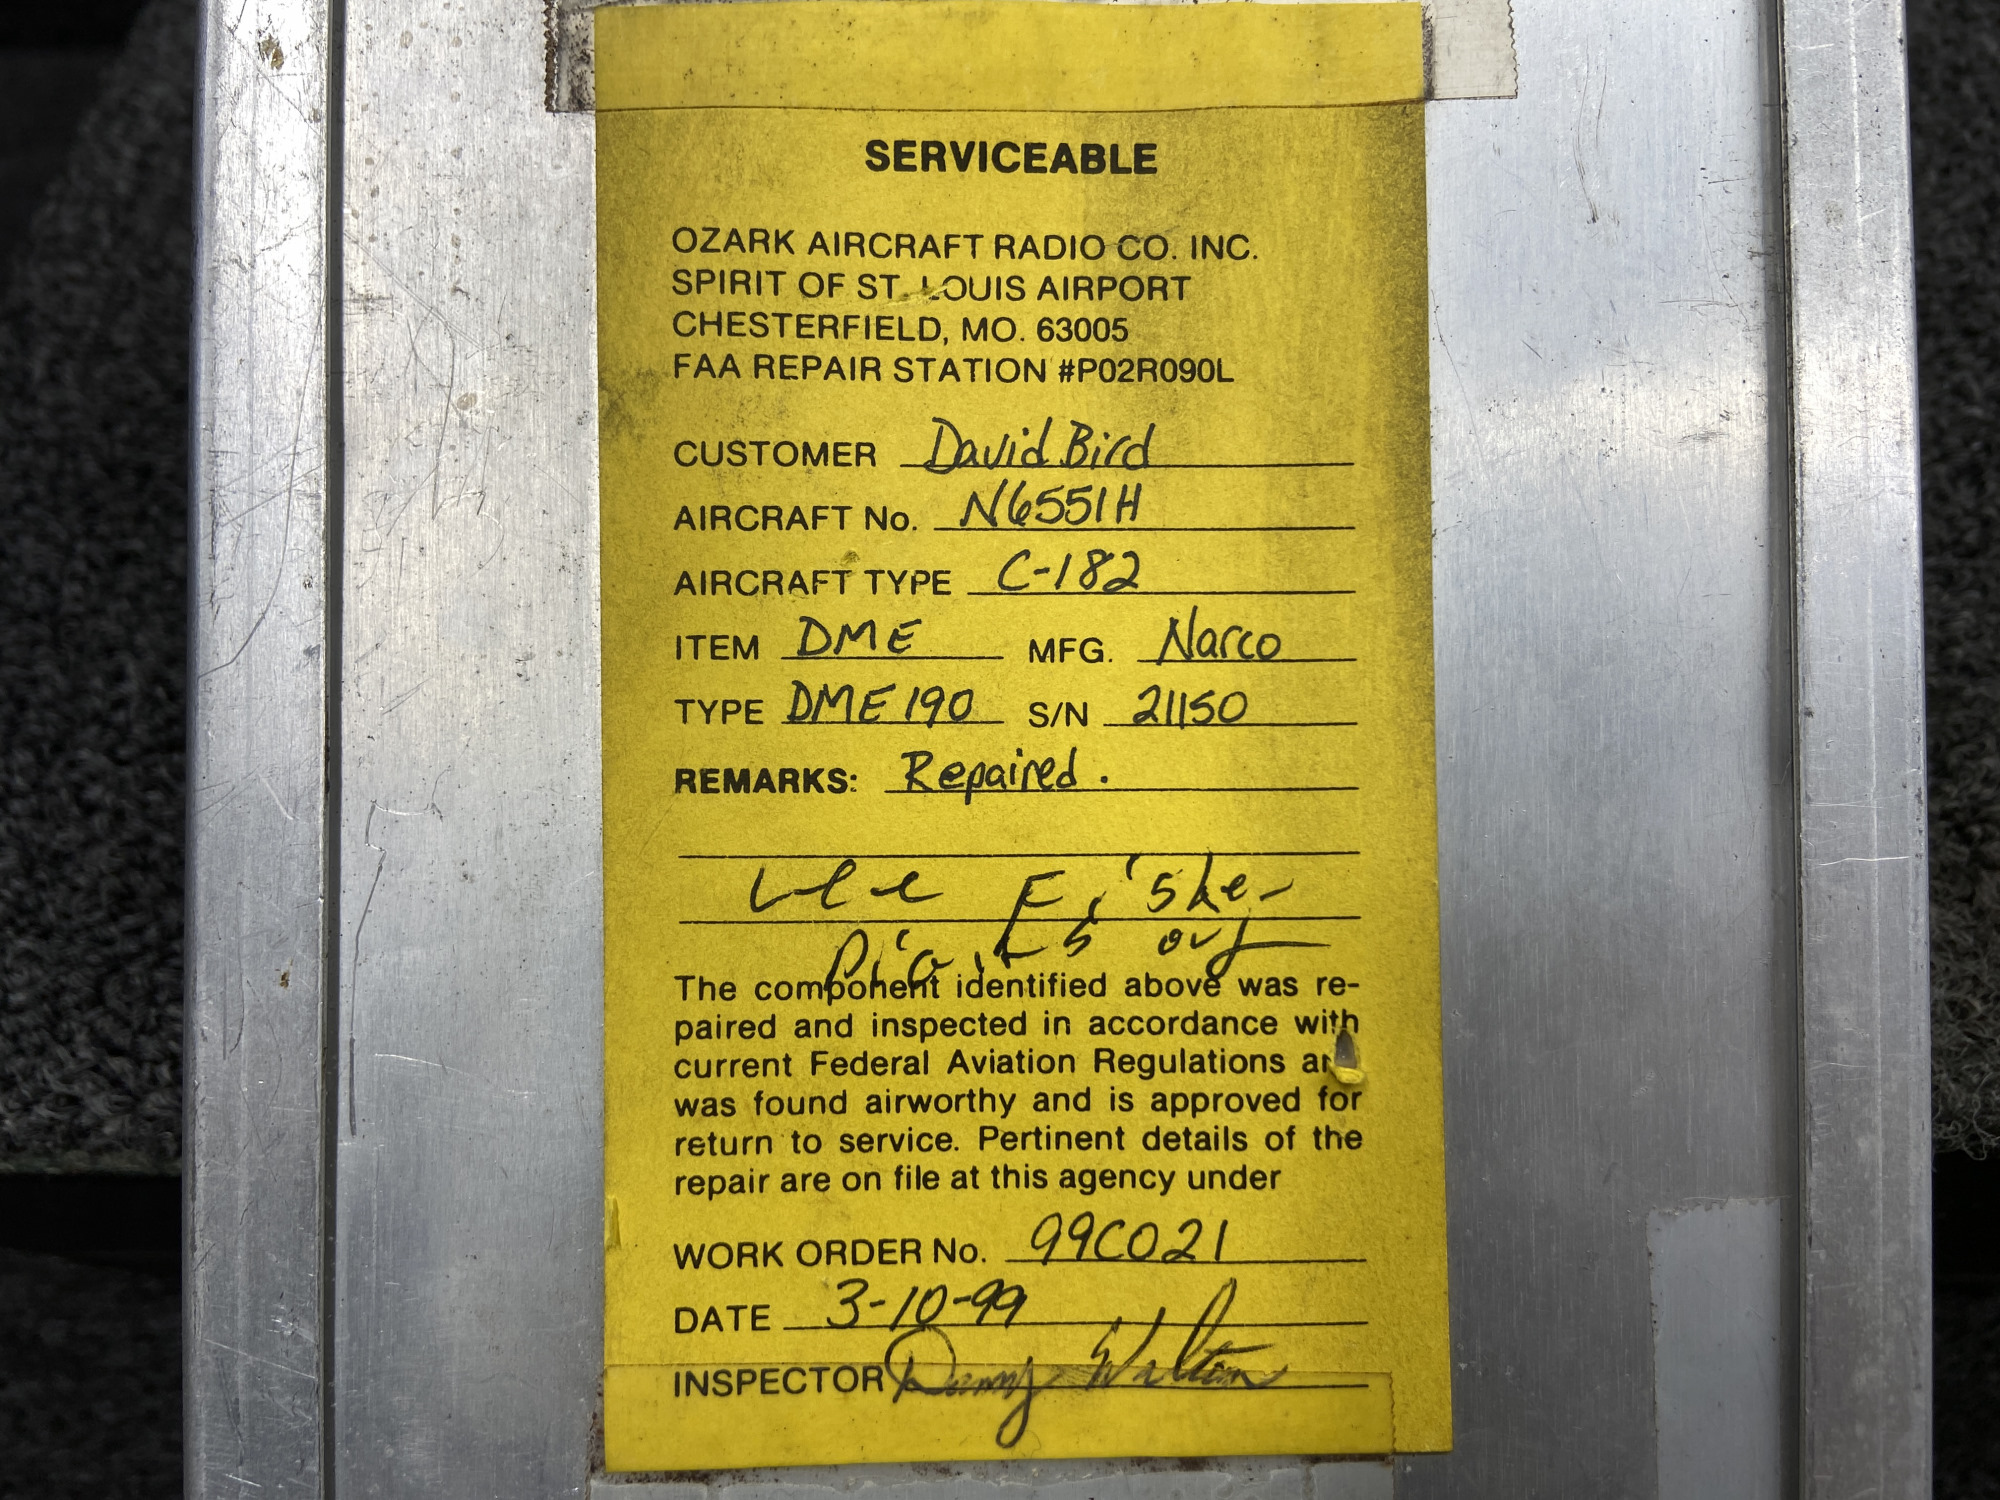 SERVICEABLE
OZARK AIRCRAFT RADIO CO. INC.
SPIRIT OF ST. LOUIS AIRPORT
CHESTERFIELD, MO. 63005
FAA REPAIR STATION #P02R090L
CUSTOMER David Bird
AIRCRAFT No. N6551H
AIRCRAFT TYPE C-182
ITEM DME MFG. Narco
TYPE DME190 S/N 21150
REMARKS: Repaired.
Lee
The component identified above was re-
paired and inspected in accordance with
current Federal Aviation Regulations
was found airworthy and is approved for
return to service. Pertinent details of the
repair are on file at this agency under
WORK ORDER No. 99C021
DATE 3-10-99
INSPECTOR Danny Walton